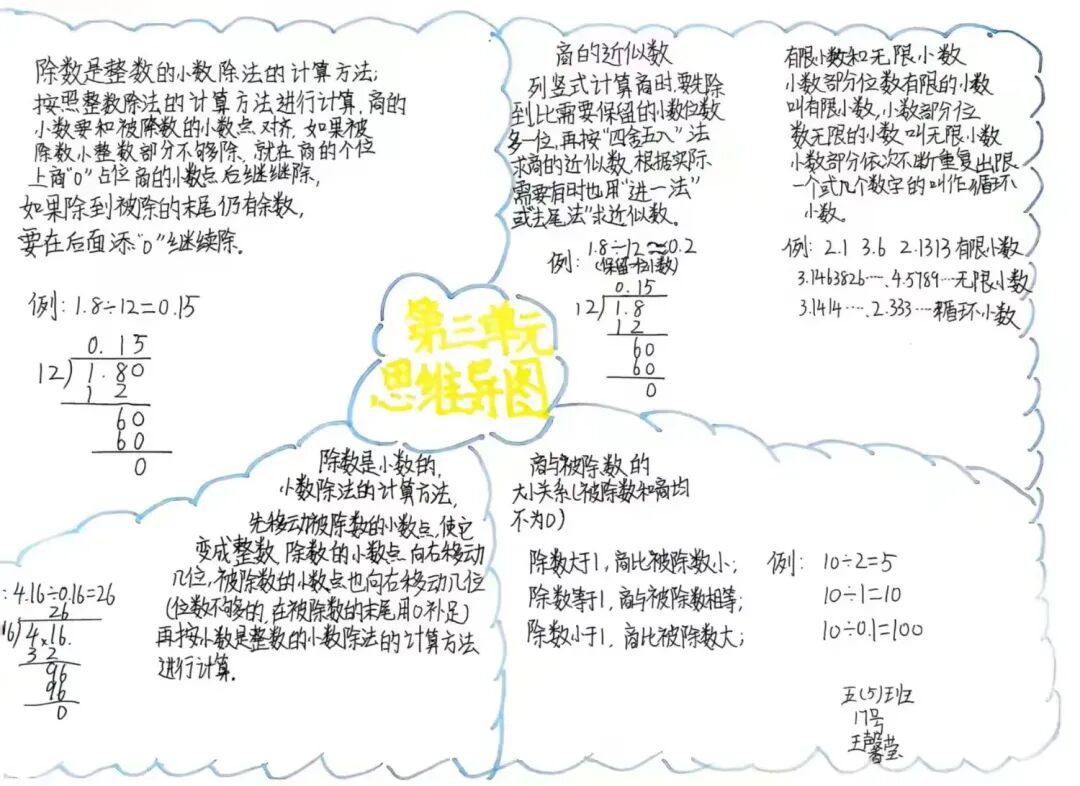 除数是整数的小数除法的计算方法;
按照整数除法的计算方法进行计算,商的
小数要和被除数的小数点对齐,如果被
除数小整数部分不够除,就在商的个位
上商"0"占位商的小数点后继继除,
如果除到被除的末尾仍有余数,
要在后面添"0"继续除。
例:1.8÷12=0.15
0.15
12)1.80
1 2
60
60
0
商的近似数
列竖式计算商时,要先除
到比需要保留的小数位数
多一位,再按"四舍五入"法
求商的近似数,根据实际
需要有时也用"进一法"
或"去尾法"求近似数。
例:1.8÷12≈0.2
(保留一位小数)
0.15
12)1.8
1 2
60
60
0
有限小数和无限小数
小数部分位数有限的小数
叫有限小数,小数部分位
数无限的小数叫无限小数
小数部分依次不断重复出限
一个或几个数字的叫作循环
小数。
例:2.1 3.6 2.1313有限小数
3.1463826….4.5789…无限小数
3.1414….2.333…循环小数
第三单元
思维导图
除数是小数的,
小数除法的计算方法,
先移动被除数的小数点,使它
变成整数,除数的小数点向右移动
几位,被除数的小数点也向右移动几位
(位数不够的,在被除数的末尾用0补足)
再按小数是整数的小数除法的计算方法
进行计算.
:4.16÷0.16=26
26
16)4.16.
3 2
96
96
0
商与被除数的
大小关系(被除数和商均
不为0)
除数大于1,商比被除数小;
除数等于1,商与被除数相等;
除数小于1,商比被除数大;
例:10÷2=5
10÷1=10
10÷0.1=100
五(5)班
17号
王馨莹